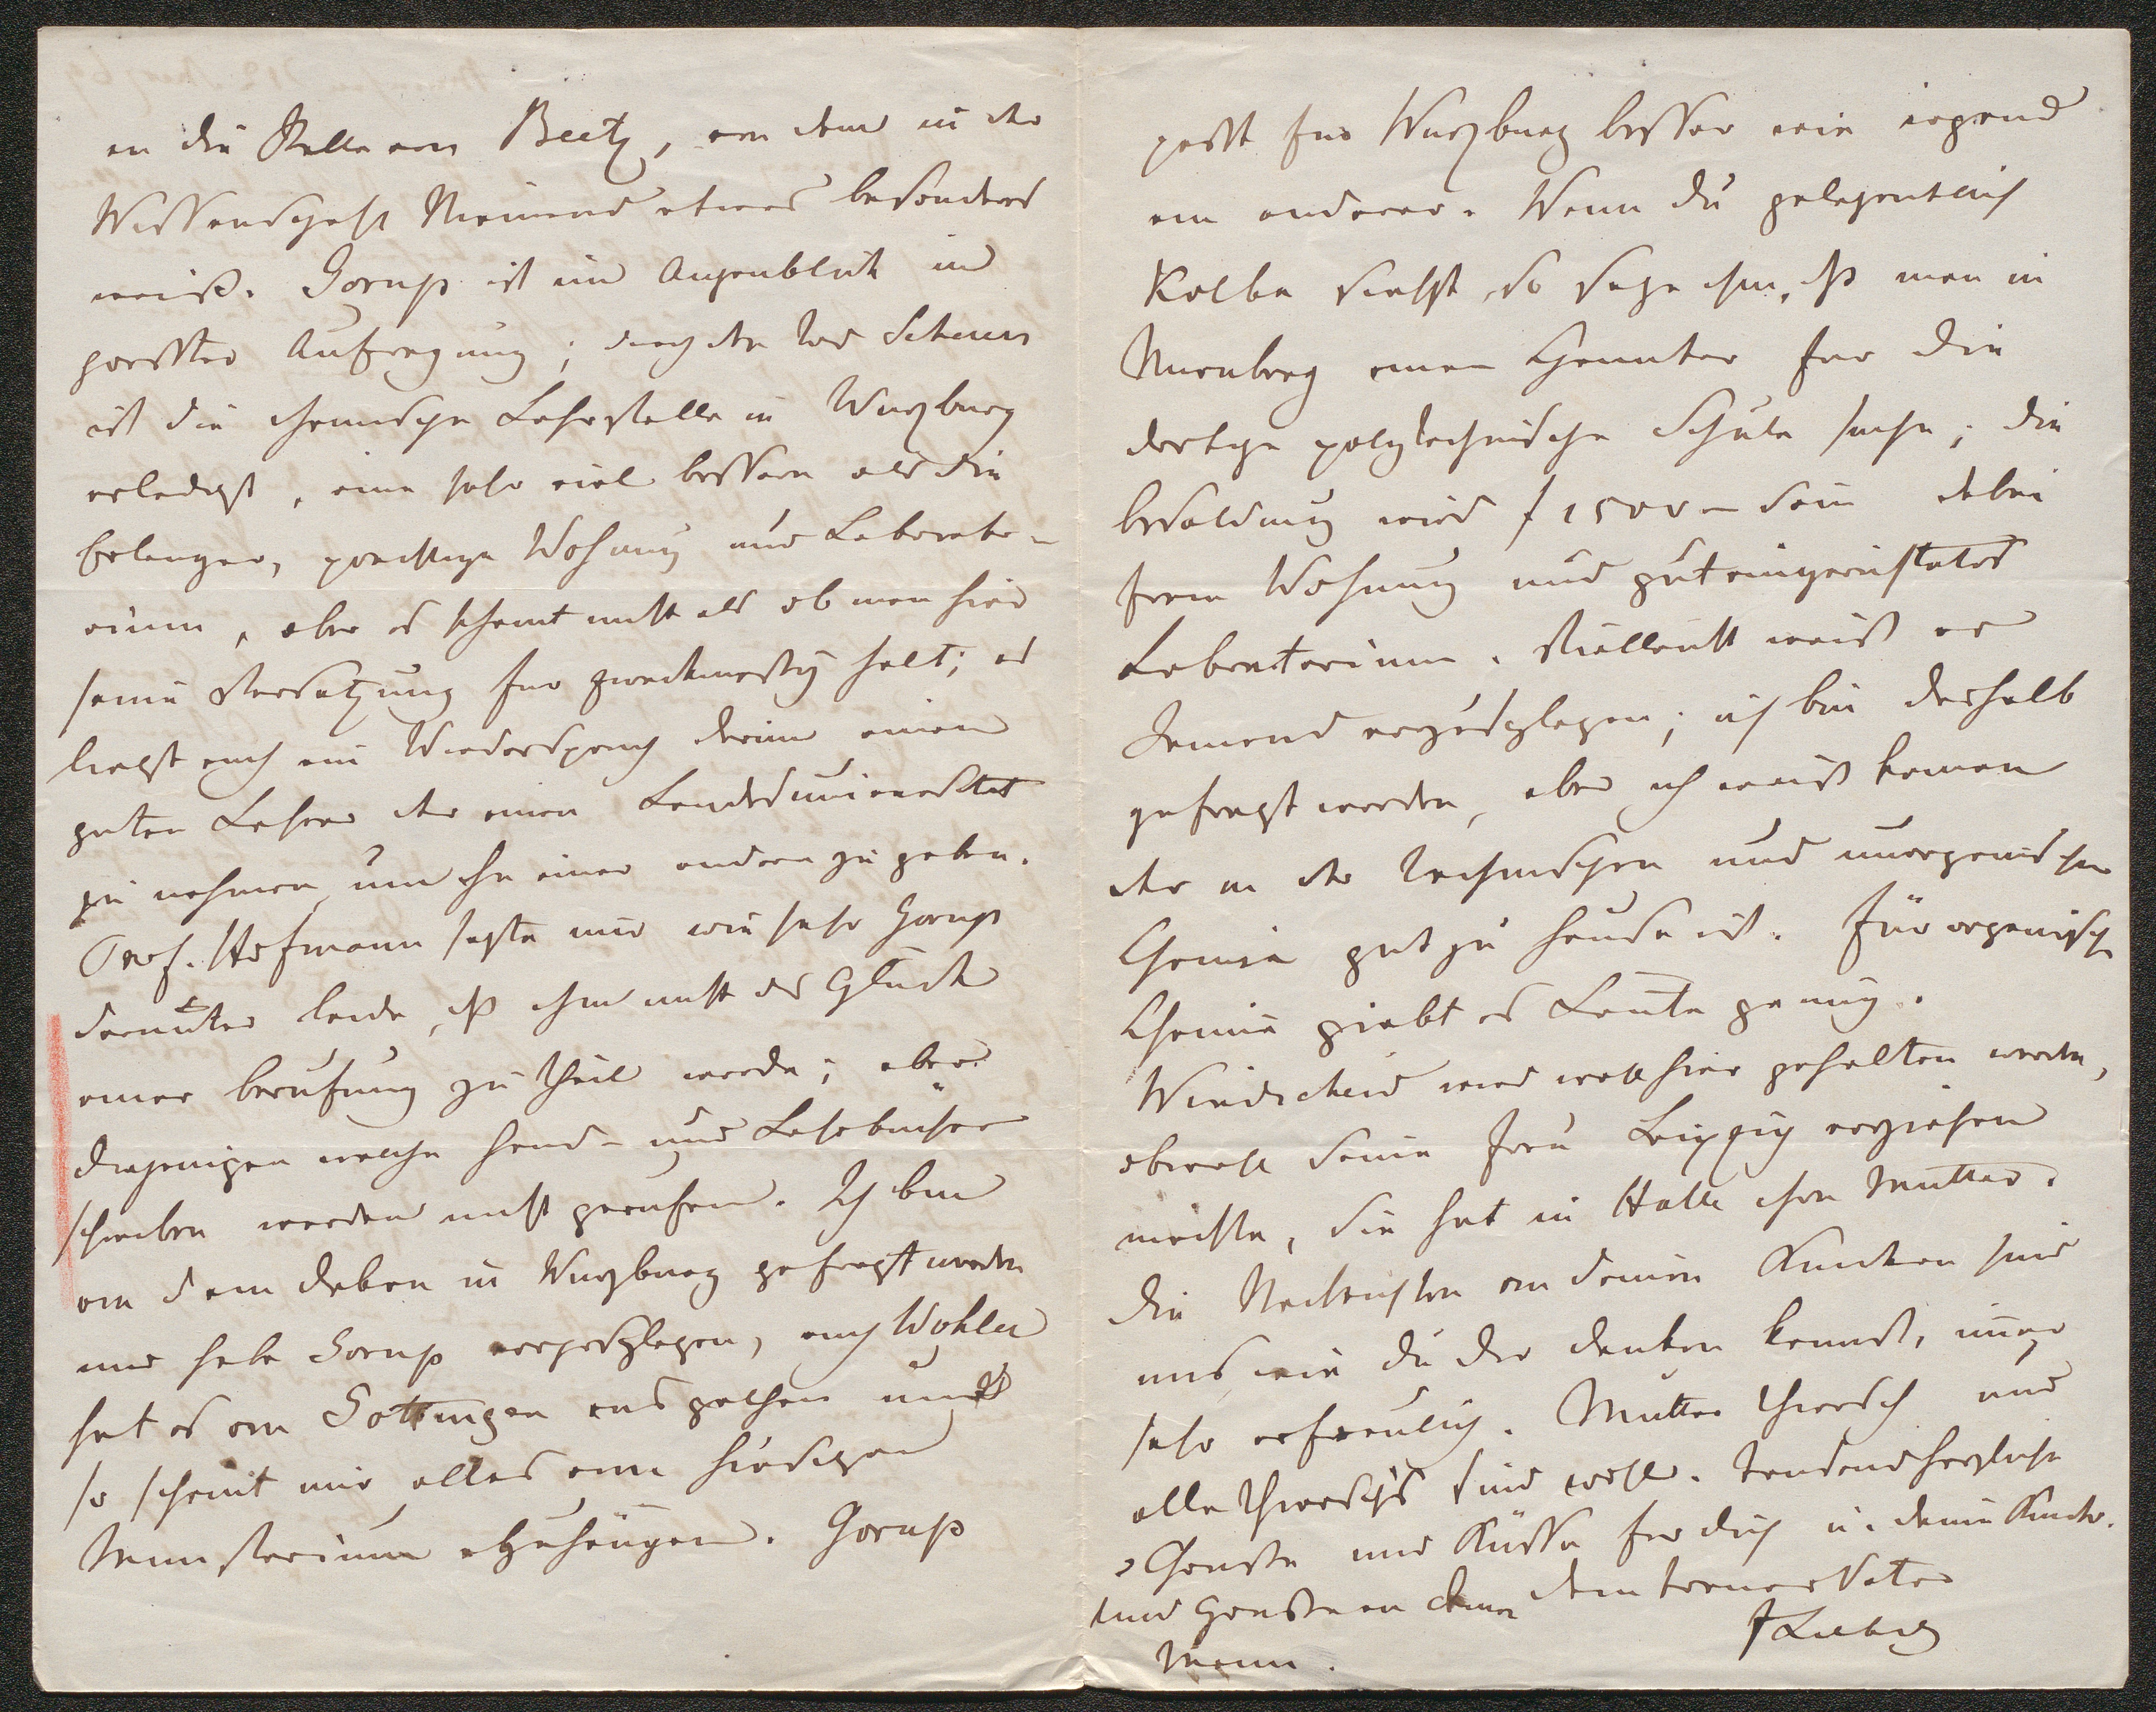 an die Stelle von Beetz, von dem in der
Wissenschaft Niemand etwas besonderes
weiß. Gorup ist im Augenblick in
großter Aufregung; durch den Tod Scherers
ist die chemische Lehrstelle in Wurzburg
erledigt, eine sehr viel bessere als die
Erlanger, prachtige Wohnung und Laborato-
rium, aber es scheint nicht als ob man hier
seine Versetzung fur zweckmaßig halt; es
liegt auch ein Widerspruch darin einen
guten Lehrer der einen Landesuniversitat
zu nehmen, um ihn einer andern zu geben.
Prof. Hofmann sagte mir wie sehr Gorup
darunter leide, daß ihm nicht das Gluck
einer Berufung zu Theil werde; aber
diejenigen welche Hand- und Lehrbücher
schreiben werden nicht gerufen. Ich bin
von dem Dekan in Wurzburg gefragt worden
und habe Gorup vorgeschlagen, auch Wohler
hat es von Gottingen aus gethan und
so scheint mir alles vom hiesigen
Ministerium abzuhängen. Gorup
passt fur Wurzburg besser wie irgend
ein anderer. Wenn du gelegentlich
Kolbe siehst, so sage ihm, daß man in
Nurnberg einen Chemiker fur die
dortige polytechnische Schule suche; die
Besoldung wird f 1500 – sein dabei
freie Wohnung und gut eingerichtetes
Laboratorium. Vielleicht weiß er
Jemand vorzuschlagen; ich bin deshalb
gefragt worden, aber ich weiß keinen
der in der technischen und unorganischen
Chemie gut zu Hause ist. Für organische
Chemie giebt es Leute genug.
Windscheid wird wohl hier gehalten werden,
obwohl seine Frau Leipzig vorziehen
möchte, sie hat in Halle ihre Mutter.
Die Nachrichten von deinen Kindern sind
uns wie du dir denken kannst, immer
sehr erfreulich. Mutter Thiersch und
alle Thiersch's sind wohl. Tausend herzliche
Grüße und Küsse fur dich u. deine Kinder.
und Gruße an deinen dein treuer Vater
Mann. J Liebig